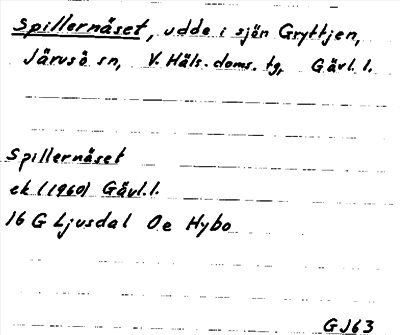 Spillernäset, udde i sjön Gryttjen,
Järvsö sn, V. Häls. doms. tg, Gävl. l.
Spillernäset
ek (1960) Gävl. l.
16 G Ljusdal 0e Hybo
GJ63